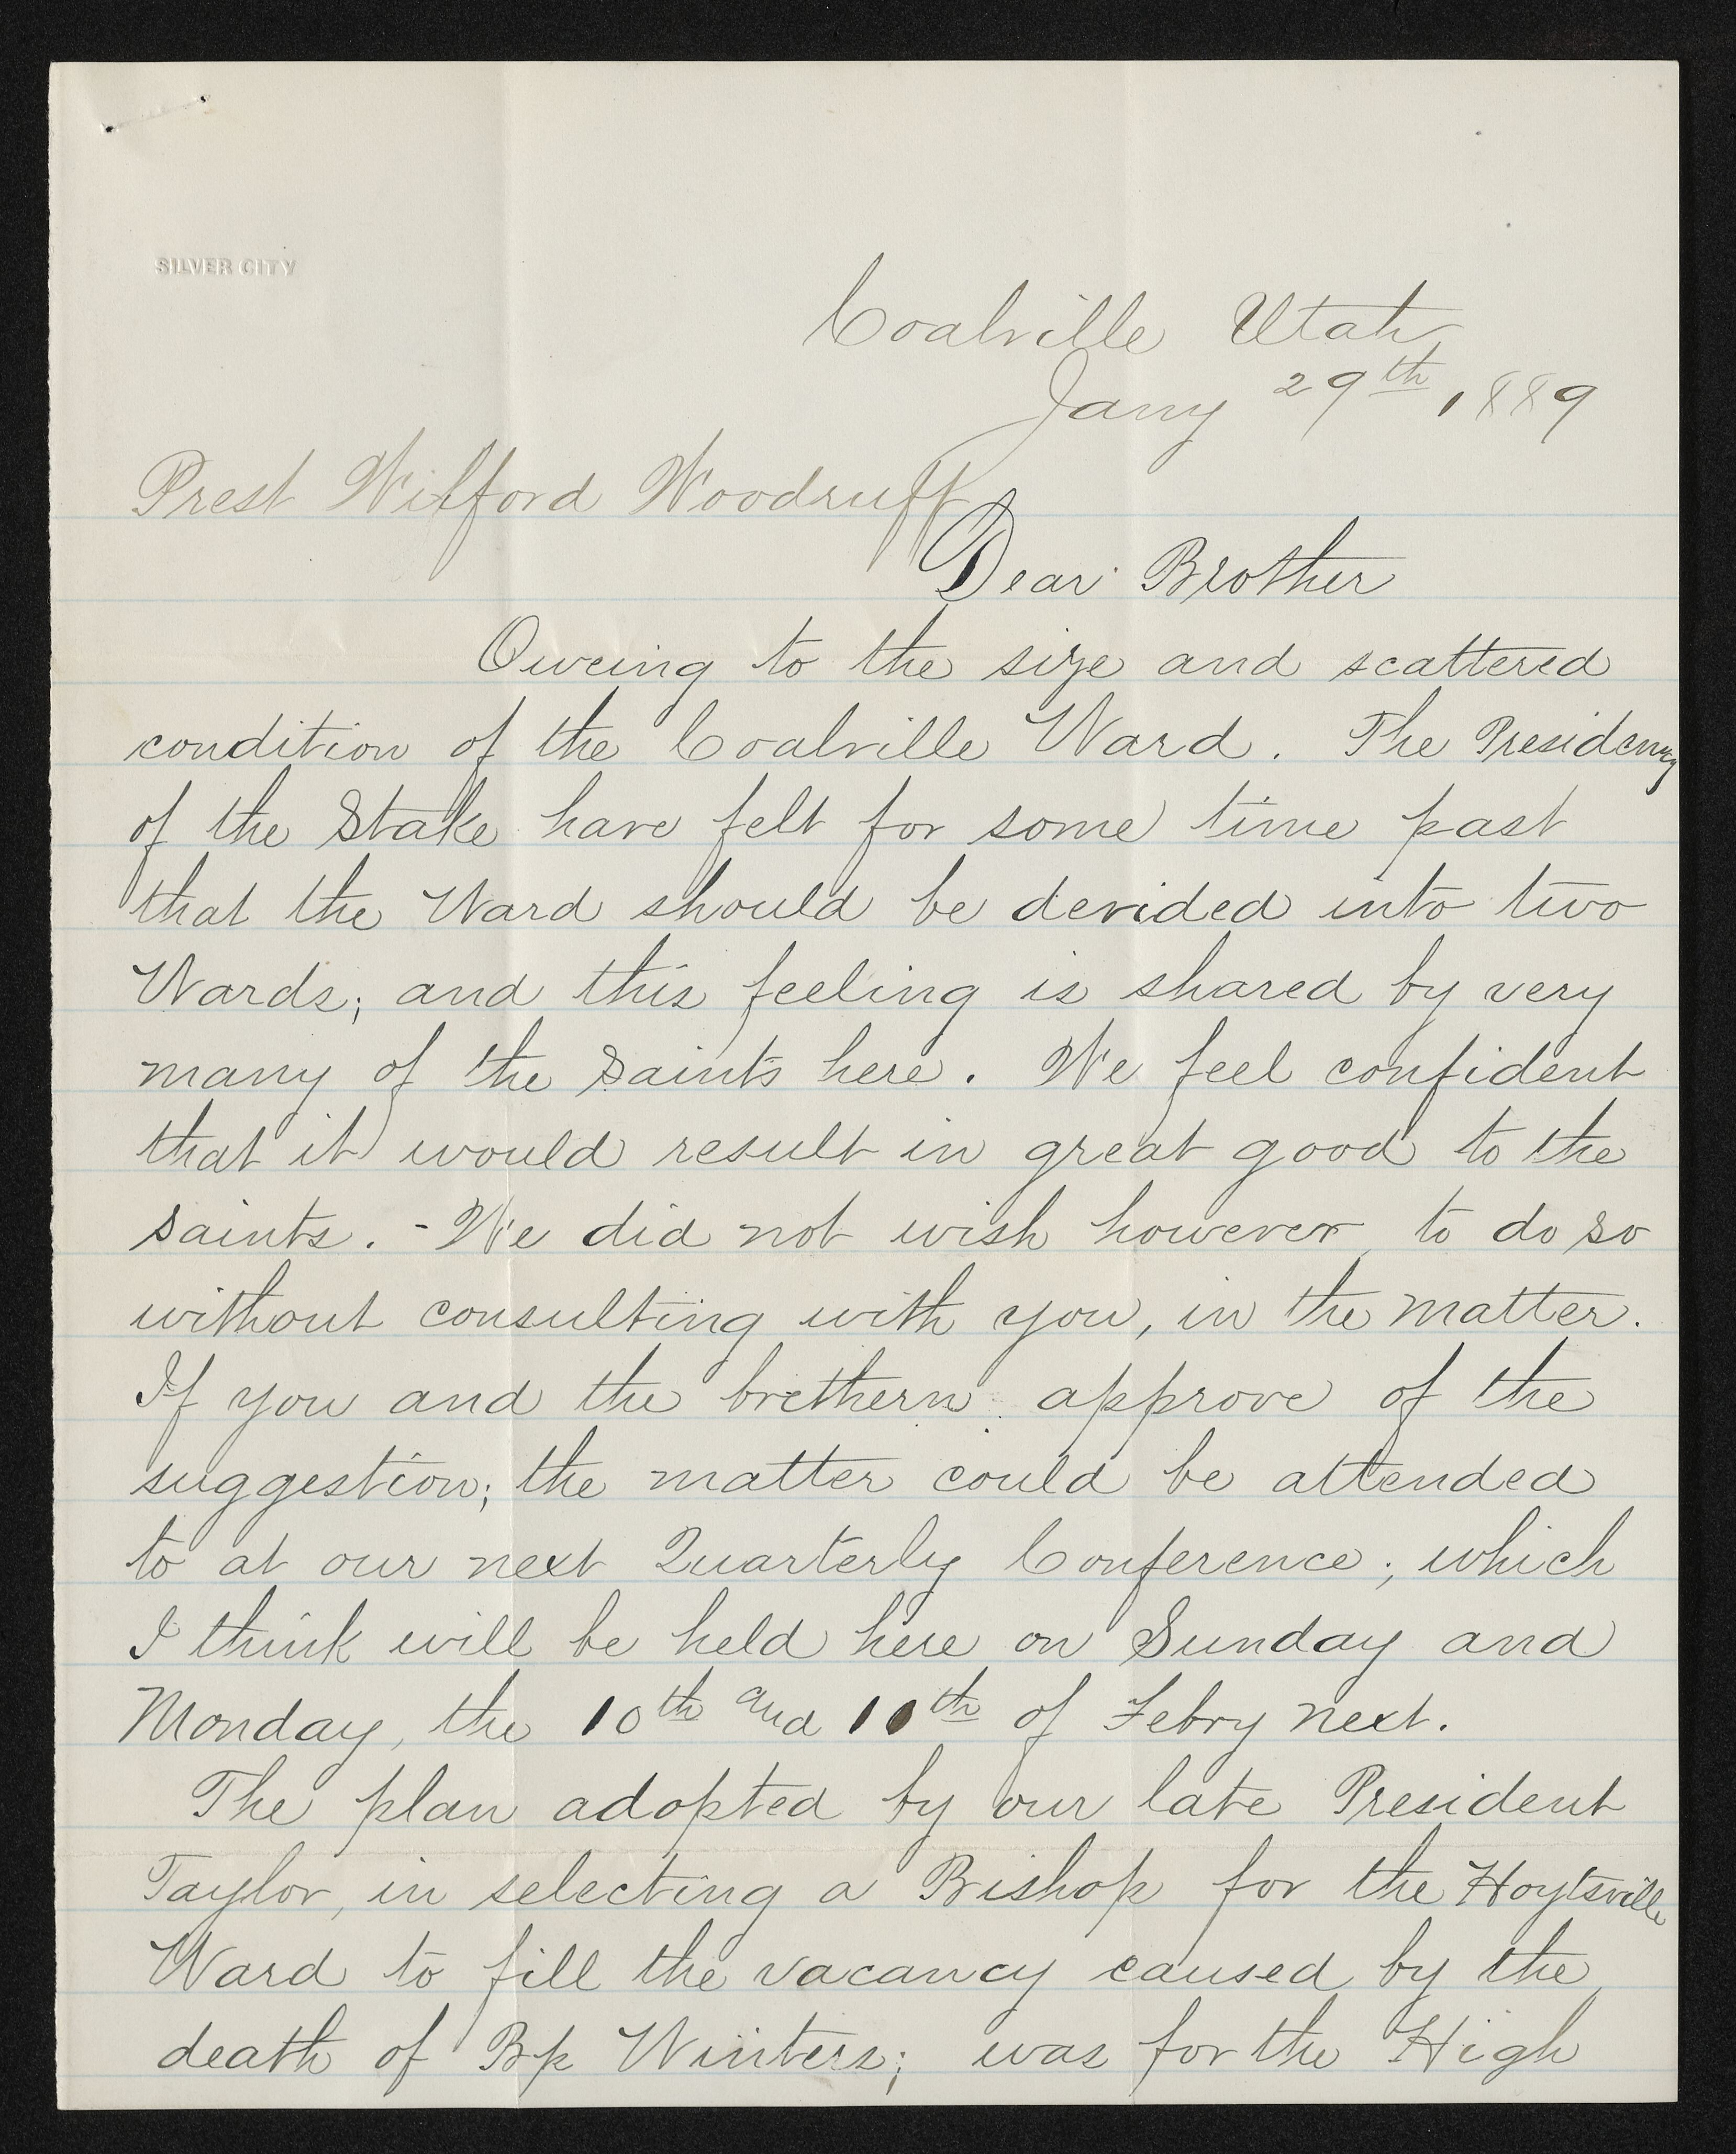 SILVER CITY
Coalville Utah
Jany 29th, 1889
Prest Wilford Woodruff
Dear Brother
Oweing to the size and scattered
condition of the Coalville Ward. The Presidency
of the Stake have felt for some time past
that the Ward should be devided into two
Wards; and this feeling is shared by very
many of the Saints here. We feel confident
that it would result in great good to the
saints. - We did not wish however to do so
without consulting with you, in the matter.
If you and the brethern approve of the
suggestion; the matter could be attended
to at our next Quarterly Conference; which
I think will be held here on Sunday and
Monday, the 10th and 11th of Febry next.
The plan adopted by our late President
Taylor, in selecting a Bishop for the Hoytsville
Ward to fill the vacancy caused by the
death of Bp Winters; was for the High